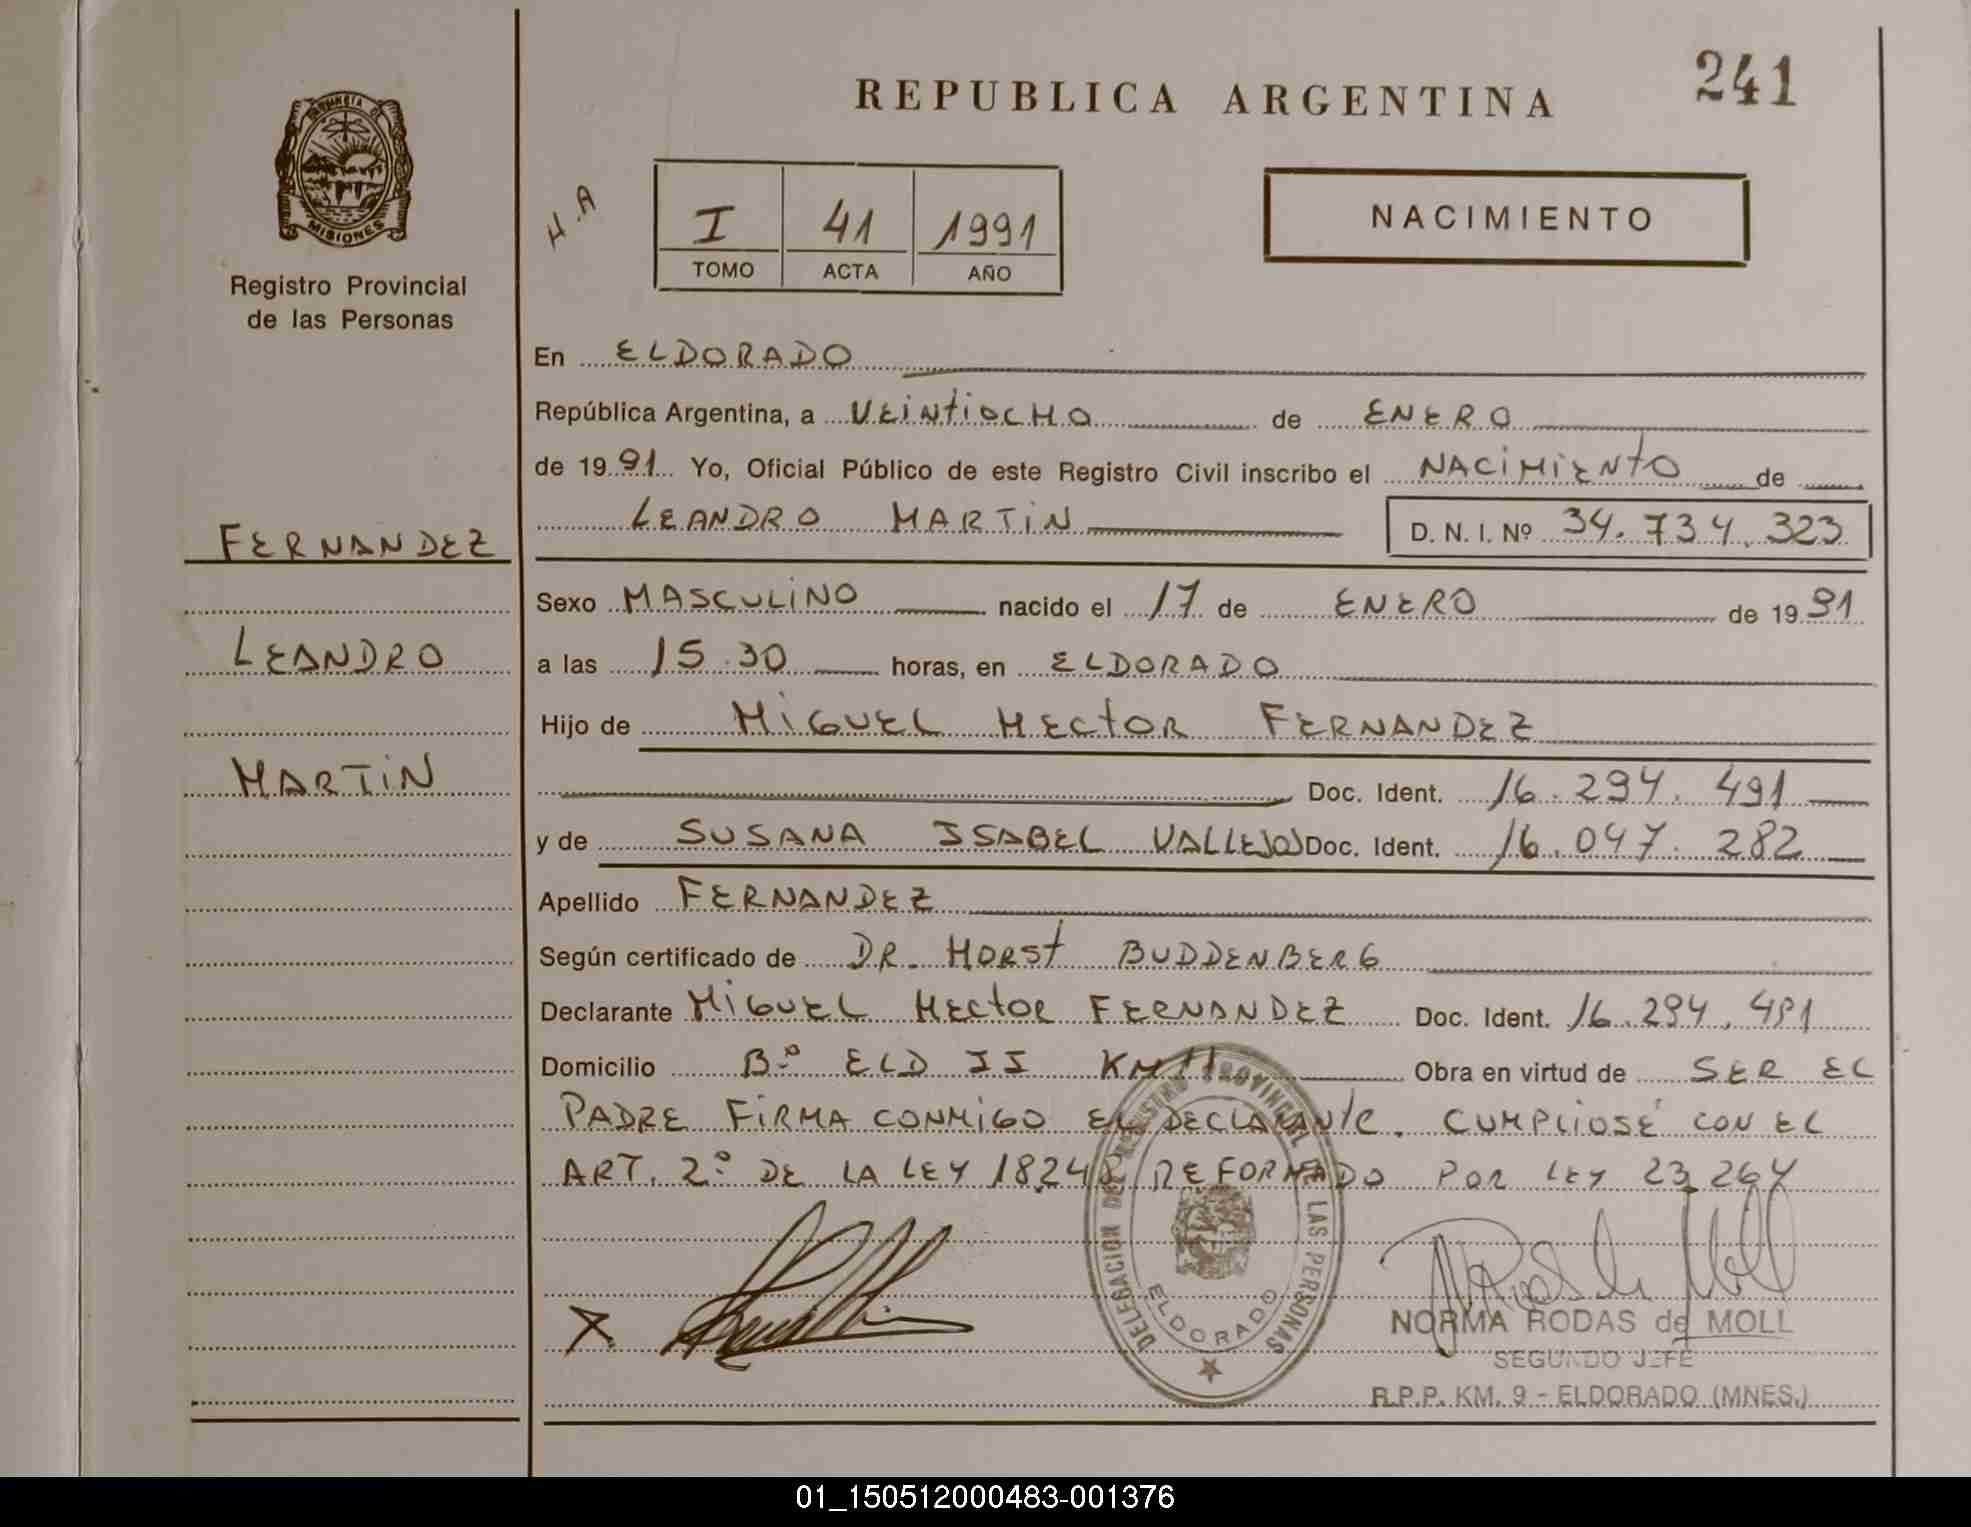 241
REPUBLICA ARGENTINA
PROVINCIA D
MISIONES
Registro Provincial
de las Personas
H.A
I 41 1991
TOMO ACTA AÑO
NACIMIENTO
En ELDORADO
República Argentina, a VEINTIOCHO de ENERO
de 1991 Yo, Oficial Público de este Registro Civil inscribo el NACIMIENTO de
LEANDRO MARTIN D. N. I. Nº 34.734.323
FERNANDEZ
LEANDRO
MARTIN
Sexo MASCULINO nacido el 17 de ENERO de 1991
a las 15.30 horas, en ELDORADO
Hijo de MIGUEL HECTOR FERNANDEZ
Doc. Ident. 16.294.491
y de SUSANA ISABEL VALLEJO Doc. Ident. 16.047.282
Apellido FERNANDEZ
Según certificado de DR. HORST BUDDENBERG
Declarante MIGUEL HECTOR FERNANDEZ Doc. Ident. 16.294.491
Domicilio Bº ELD II KM 11 Obra en virtud de SER EL
PADRE FIRMA CONMIGO EL DECLARANTE. CUMPLIOSÉ CON EL
ART. 2º DE LA LEY 18.248 REFORMADO POR LEY 23.264
DELEGACION DEL REGISTRO PROVINCIAL DE LAS PERSONAS
ELDORADO
NORMA RODAS de MOLL
SEGUNDO JEFE
R.P.P. KM. 9 - ELDORADO (MNES.)
01_150512000483-001376